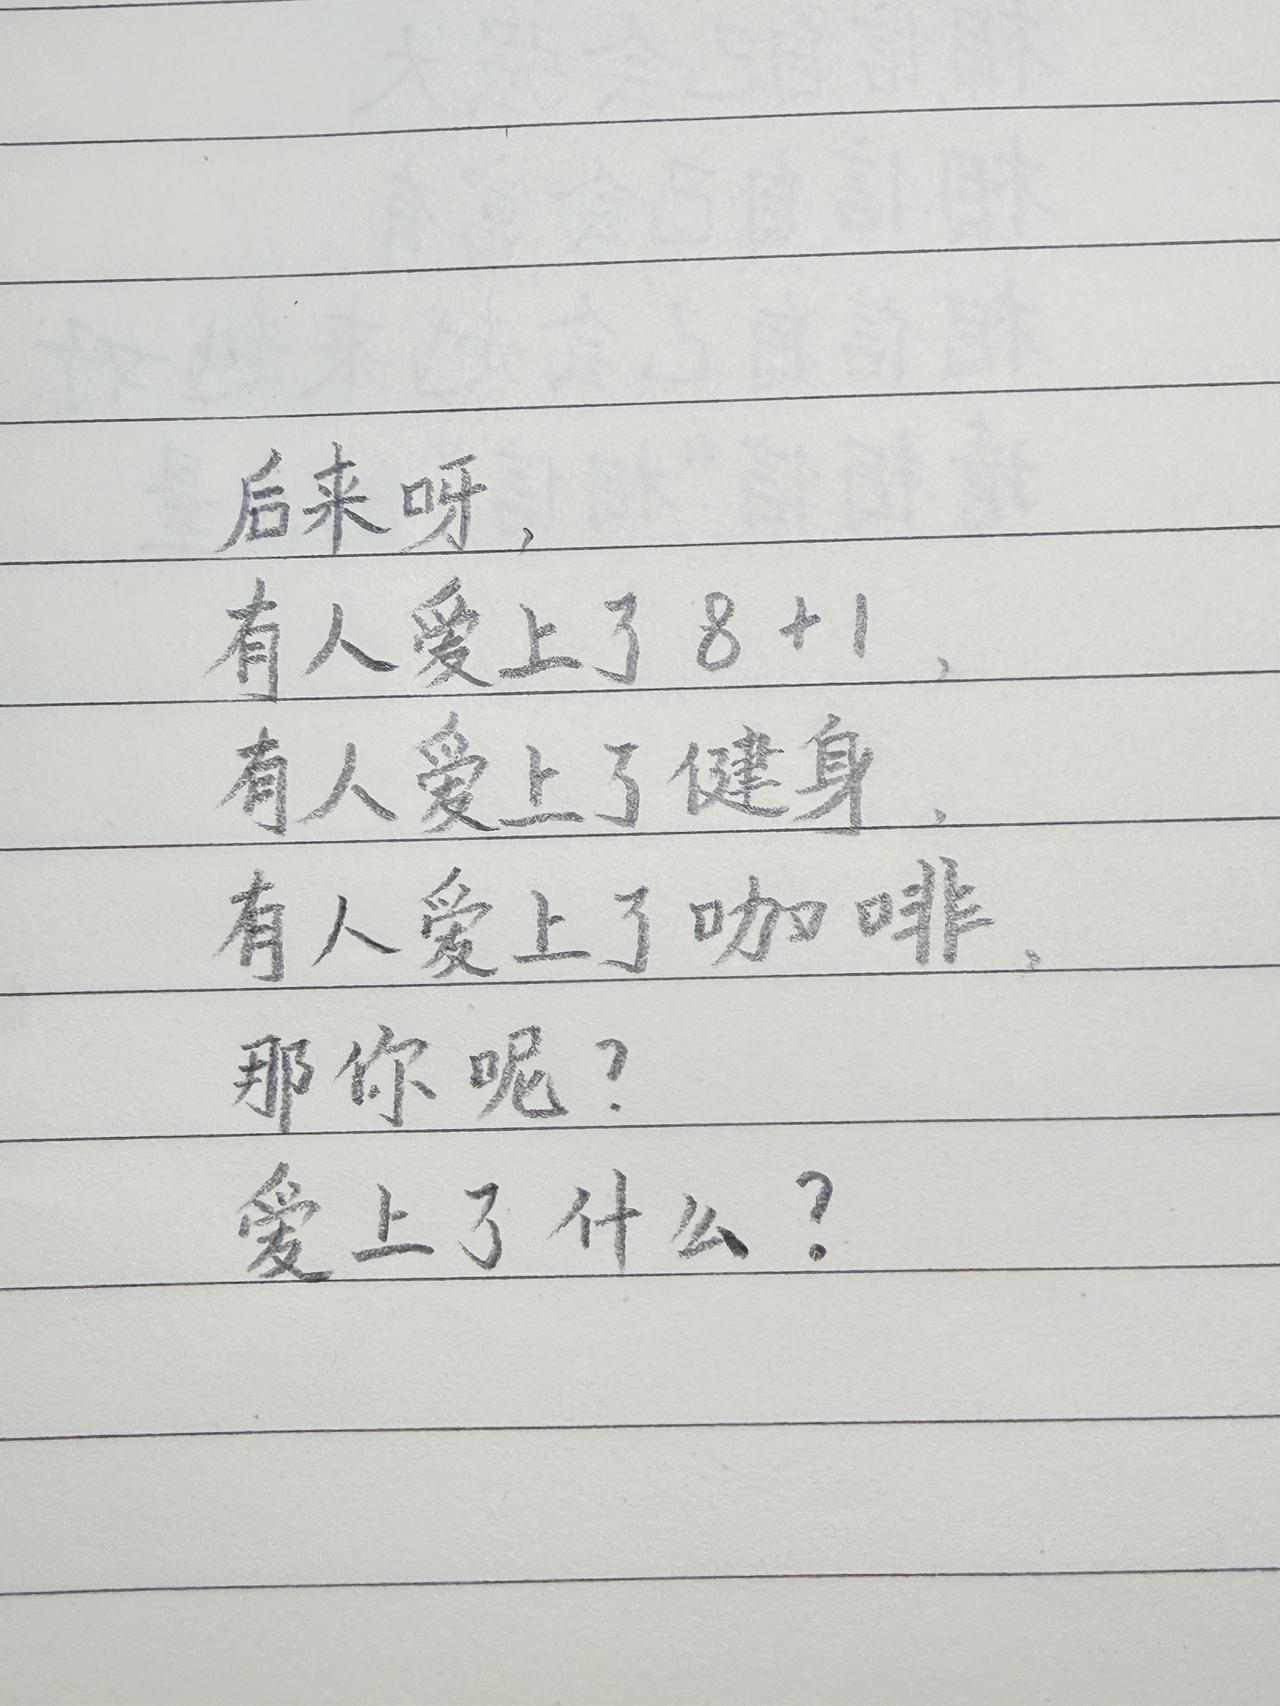 后来呀，
有人爱上了8+1，
有人爱上了健身，
有人爱上了咖啡，
那你呢？
爱上了什么？